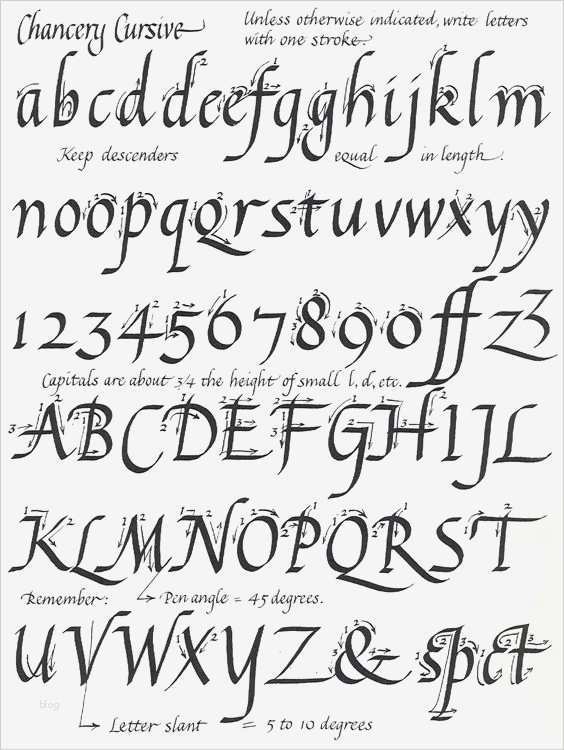 Chancery Cursive
Unless otherwise indicated, write letters
with one stroke.
a b c d d e e f g g h i j k l m
Keep descenders equal in length.
n o o p p q q r s t u v w x y y
1 2 3 4 5 6 7 8 9 0 ff z z
Capitals are about 3/4 the height of small l, d, etc.
A B C D E F G H I J L
K L M N O P Q R S T
Remember: Pen angle = 45 degrees.
U V W X Y Z & sp ct
blog
Letter slant = 5 to 10 degrees